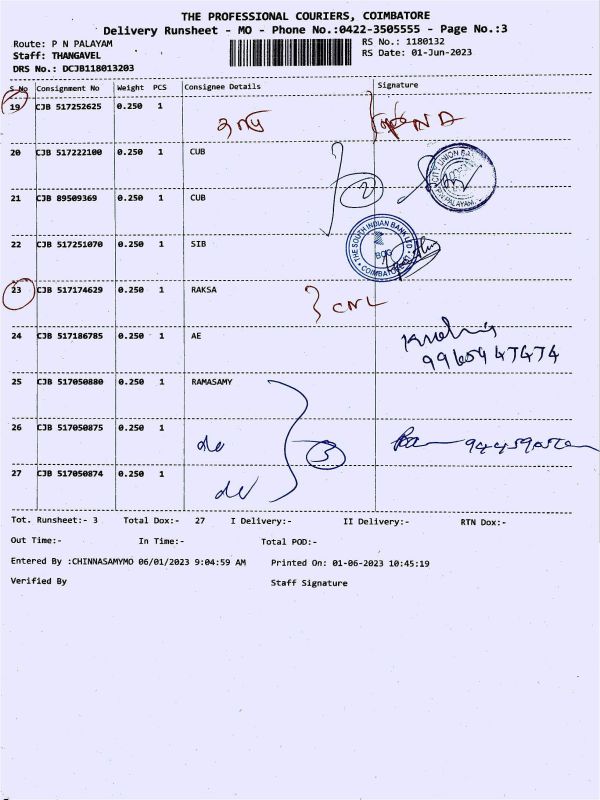 THE PROFESSIONAL COURIERS, COIMBATORE
Delivery Runsheet - MO - Phone No.:0422-3505555 - Page No.:3
Route: P N PALAYAM RS No.: 1180132
Staff: THANGAVEL RS Date: 01-Jun-2023
DRS No.: DCJB118013203
S No Consignment No Weight PCS Consignee Details Signature
19 CJB 517252625 0.250 1
20 CJB 517222100 0.250 1 CUB
CITY UNION P N PALAYAM
21 CJB 89509369 0.250 1 CUB
2
22 CJB 517251070 0.250 1 SIB
THE SOUTH INDIAN BANK LTD. COIMBATORE
23 CJB 517174629 0.250 1 RAKSA
CNL
24 CJB 517186785 0.250 1 AE
9965947474
25 CJB 517050880 0.250 1 RAMASAMY
26 CJB 517050875 0.250 1
do
3
27 CJB 517050874 0.250 1
do
Tot. Runsheet:- 3 Total Dox:- 27 I Delivery:- II Delivery:- RTN Dox:-
Out Time:- In Time:- Total POD:-
Entered By :CHINNASAMYMO 06/01/2023 9:04:59 AM Printed On: 01-06-2023 10:45:19
Verified By Staff Signature